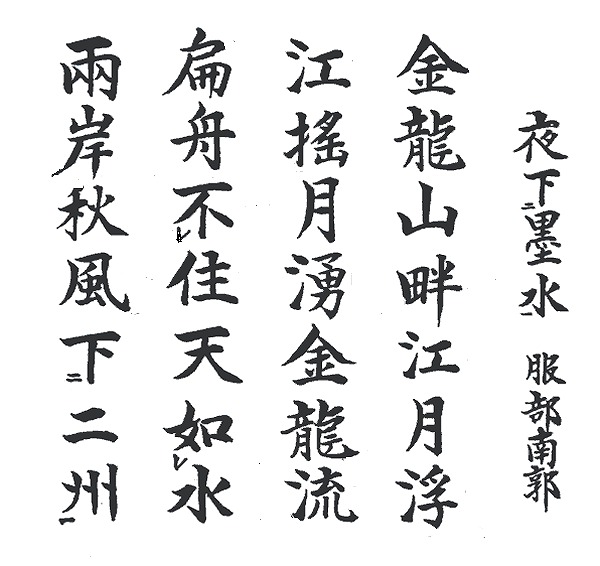 夜下二墨水一 服部南郭
金龍山畔江月浮
江搖月湧金龍流
扁舟不レ住天如レ水
兩岸秋風下二二州一